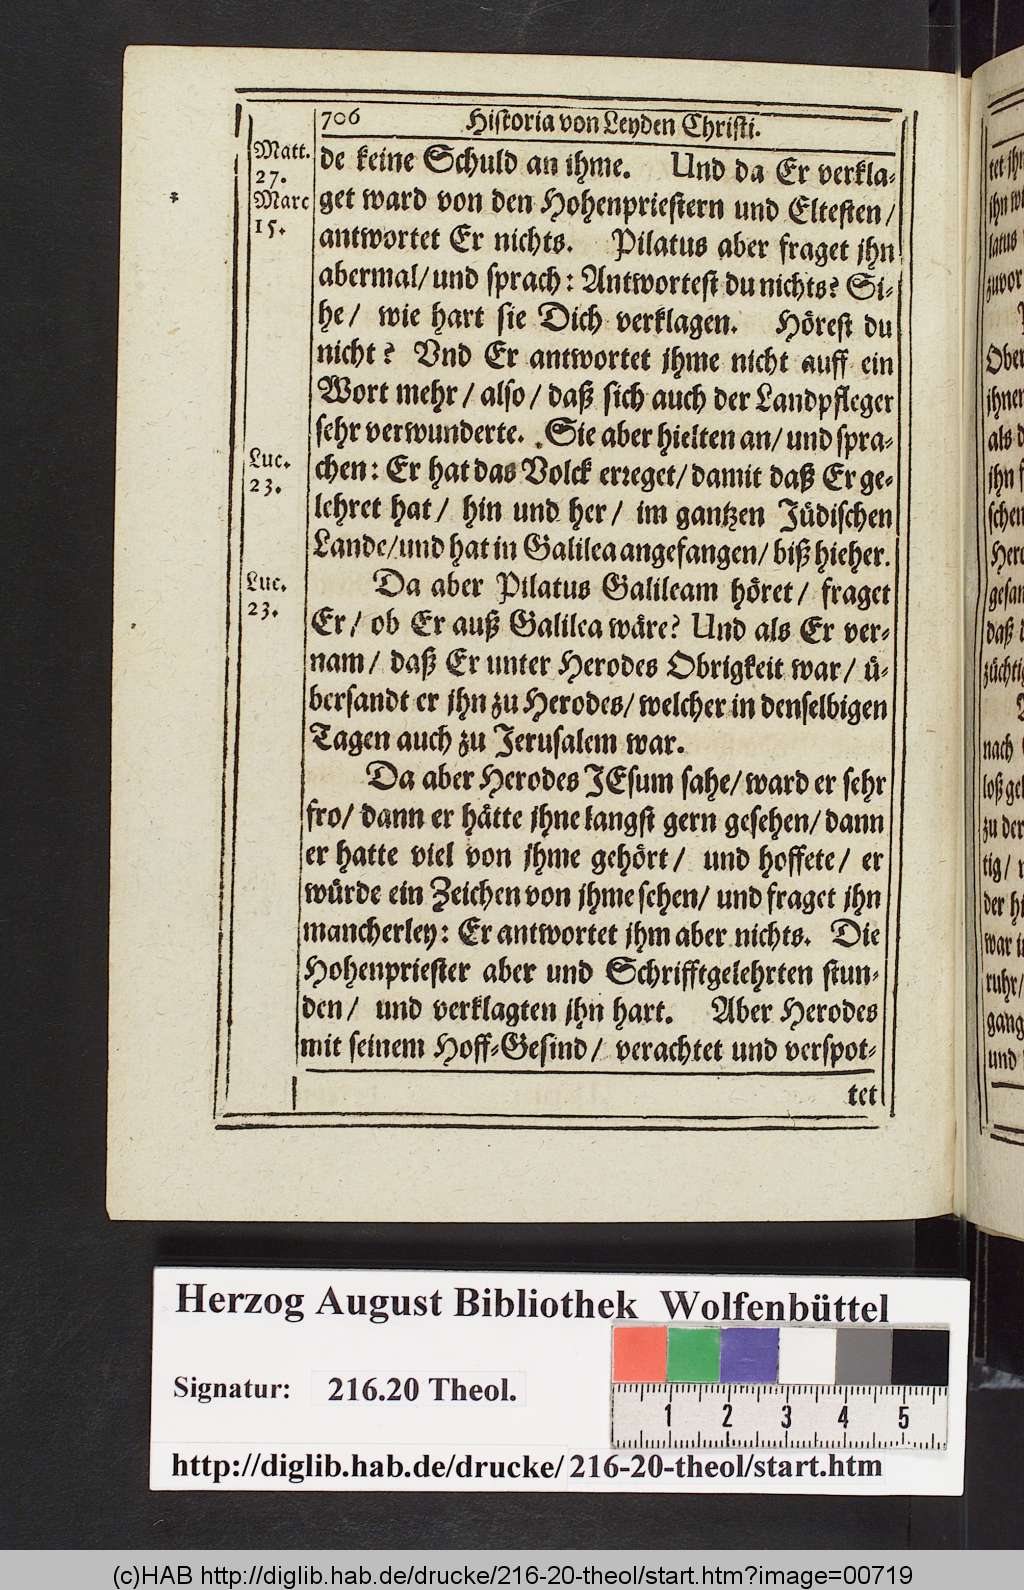 706 Historia von Leyden Christi.
Matt.
27.
Marc
15.
de keine Schuld an ihme. Und da Er verkla-
get ward von den Hohenpriestern und Eltesten/
antwortet Er nichts. Pilatus aber fraget jhn
abermal/ und sprach: Antwortest du nichts? Si-
he/ wie hart sie Dich verklagen. Hörest du
nicht? Vnd Er antwortet jhme nicht auff ein
Wort mehr/ also/ daß sich auch der Landpfleger
sehr verwunderte. Sie aber hielten an/ und spra-
Luc.
23.
chen: Er hat das Volck erreget/ damit daß Er ge-
lehret hat/ hin und her/ im gantzen Jüdischen
Lande/ und hat in Galilea angefangen/ biß hieher.
Luc.
23.
Da aber Pilatus Galileam höret/ fraget
Er/ ob Er auß Galilea wäre? Und als Er ver-
nam/ daß Er unter Herodes Obrigkeit war/ ü-
bersandt er jhn zu Herodes/ welcher in denselbigen
Tagen auch zu Jerusalem war.
Da aber Herodes JEsum sahe/ ward er sehr
fro/ dann er hätte jhne langst gern gesehen/ dann
er hatte viel von jhme gehört/ und hoffete/ er
würde ein Zeichen von jhme sehen/ und fraget jhn
mancherley: Er antwortet jhm aber nichts. Die
Hohenpriester aber und Schrifftgelehrten stun-
den/ und verklagten jhn hart. Aber Herodes
mit seinem Hoff-Gesind/ verachtet und verspot-
tet
Herzog August Bibliothek Wolfenbüttel
Signatur: 216.20 Theol.
1 2 3 4 5
http://diglib.hab.de/drucke/216-20-theol/start.htm
(c)HAB http://diglib.hab.de/drucke/216-20-theol/start.htm?image=00719